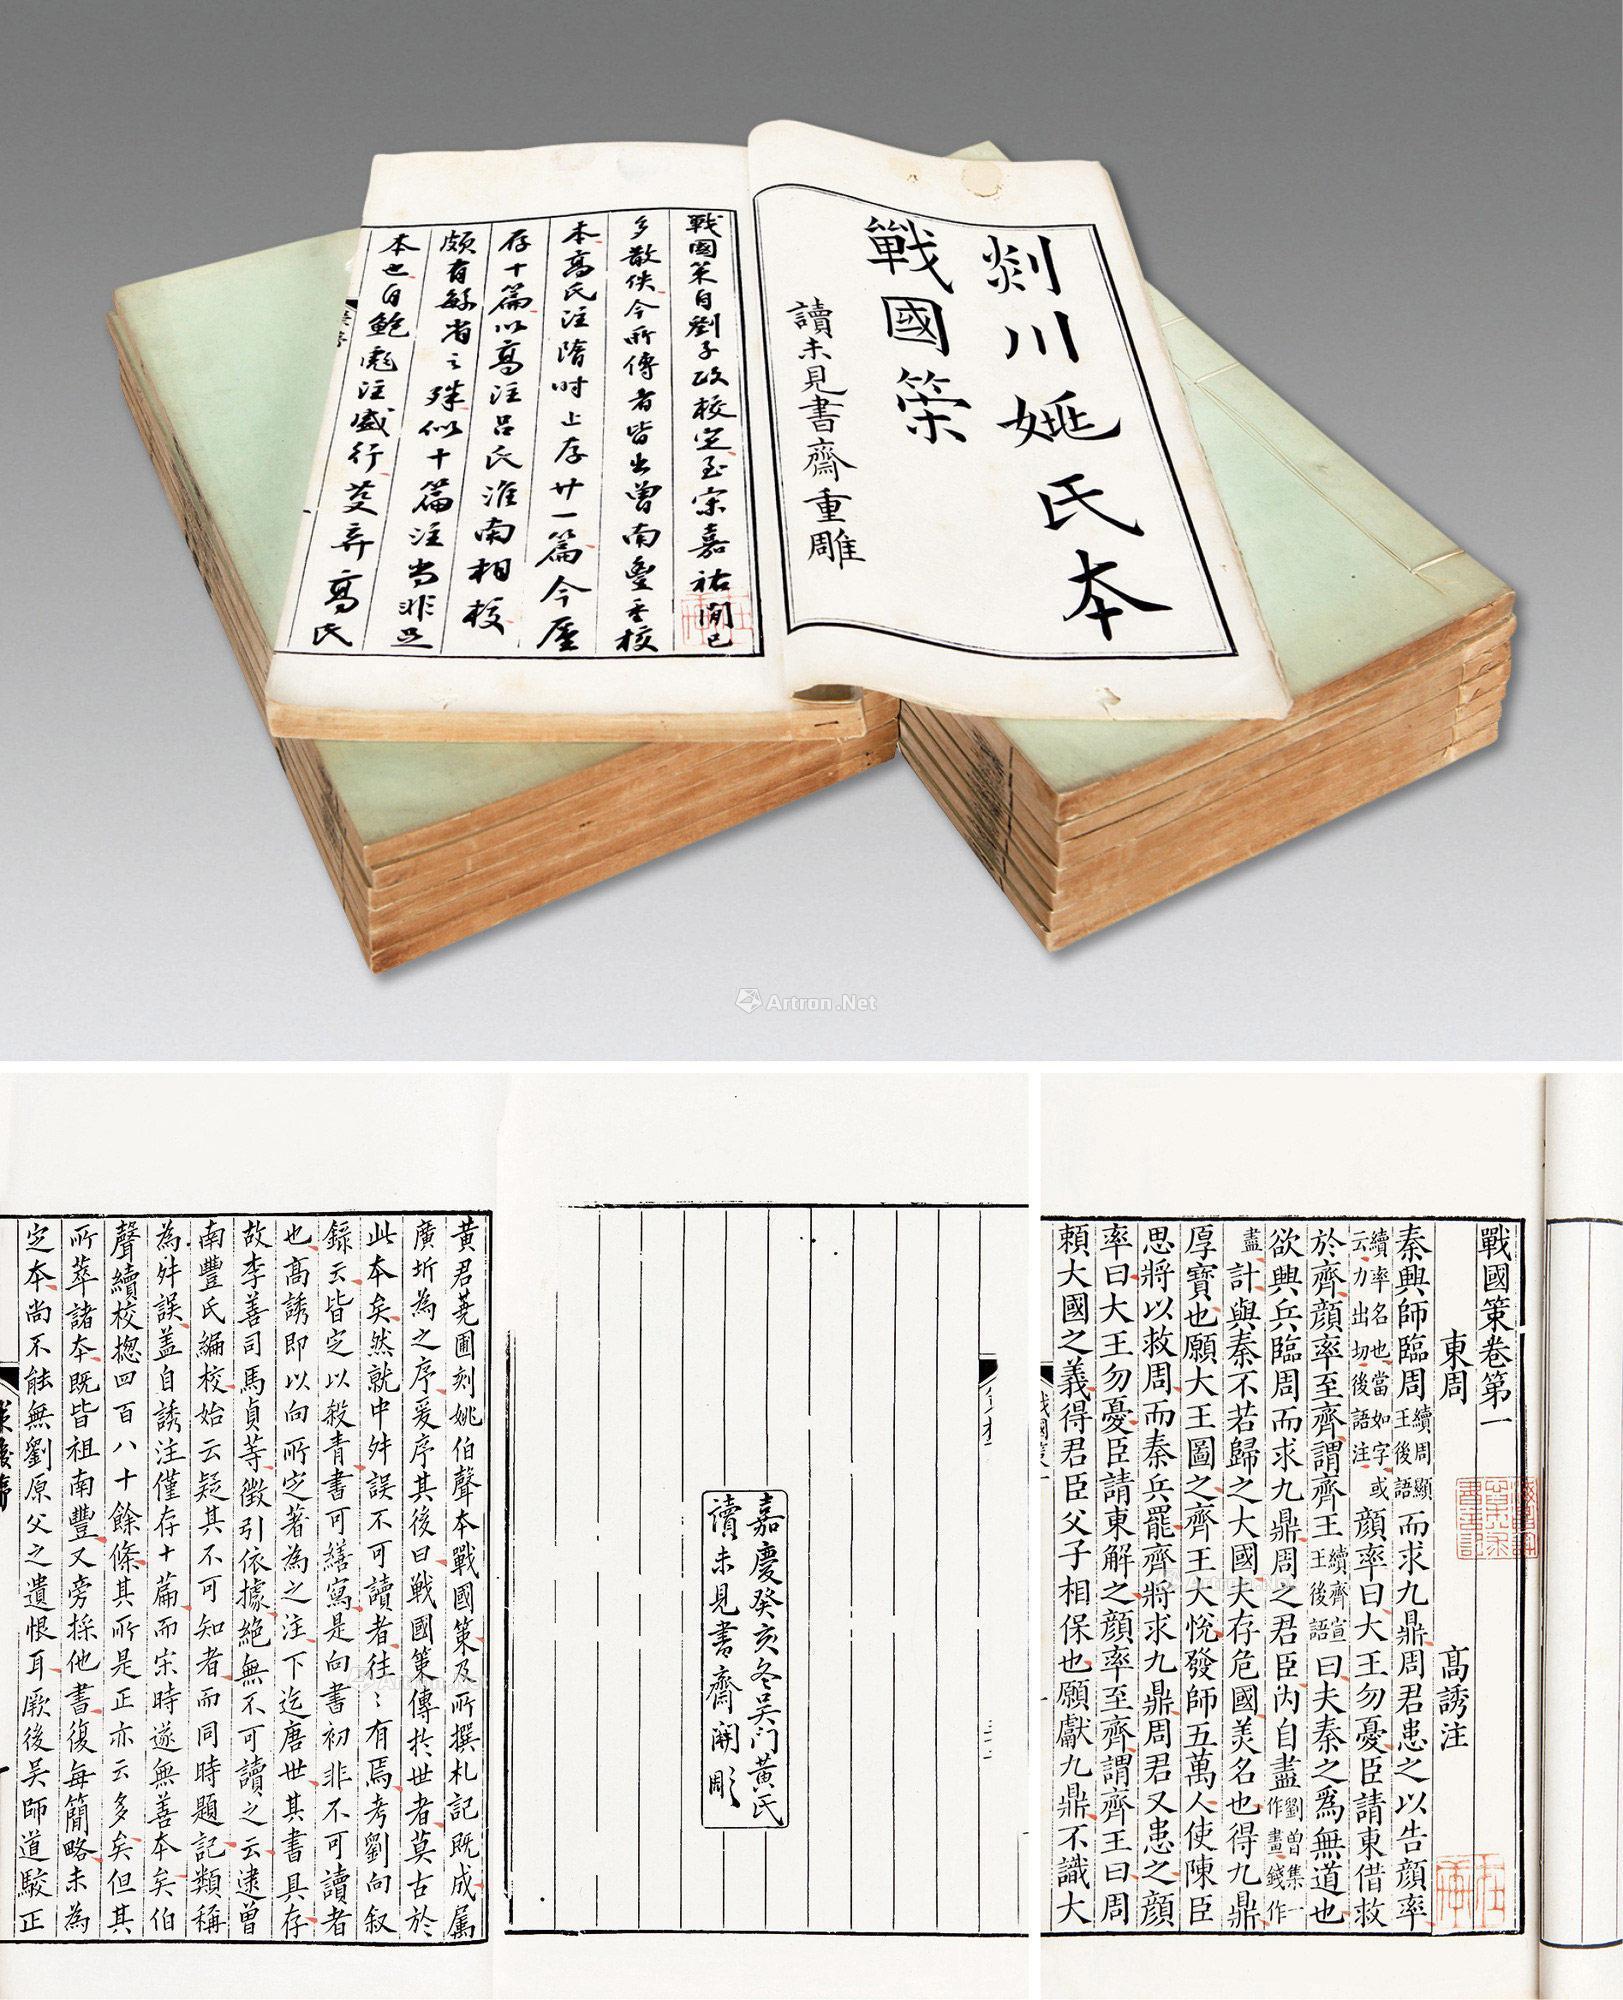 剡川姚氏本
戰國策
讀未見書齋重雕
戰國策自劉子政校定至宋嘉祐間已
多散佚今所傳者皆出曾南豐重校
本高氏注隋時止存廿一篇今廑
存十篇以高注呂氏淮南相校
頗有緐省之殊似十篇注尚非足
本也自鮑彪注盛行芟弃高氏
Artron.Net
戰國策卷第一
東周
高誘注
秦興師臨周續周顯王後語而求九鼎周君患之以告顔率
續率名也當如字或云力出切後語注顔率曰大王勿憂臣請東借救
於齊顔率至齊謂齊王續齊宣王後語曰夫秦之爲無道也
欲興兵臨周而求九鼎周之君臣内自盡劉曾集一作畫錢作
盡計與秦不若歸之大國夫存危國美名也得九鼎
厚寶也願大王圖之齊王大悅發師五萬人使陳臣
思將以救周而秦兵罷齊將求九鼎周君又患之顔
率曰大王勿憂臣請東解之顔率至齊謂齊王曰周
賴大國之義得君臣父子相保也願獻九鼎不識大
嘉慶癸亥冬吴门黄氏
讀未見書齋開彫
黄君蕘圃刻姚伯聲本戰國策及所撰札記既成属
廣圻為之序爰序其後曰戰國策傳扵世者莫古於
此本矣然就中舛誤不可讀者往〻有焉考劉向叙
錄云皆定以殺青書可繕寫是向書初非不可讀者
也高誘即以向所定著為之注下迄唐世其書具存
故李善司馬貞等徵引依據絶無不可讀之云逮曾
南豐氏編校始云疑其不可知者而同時題記類稱
為舛誤盖自誘注僅存十篇而宋時遂無善本矣伯
聲續校揔四百八十餘條其所是正亦云多矣但其
所萃諸本既皆祖南豐又旁採他書復每簡略未為
定本尚不能無劉原父之遺恨耳厥後吴師道駮正